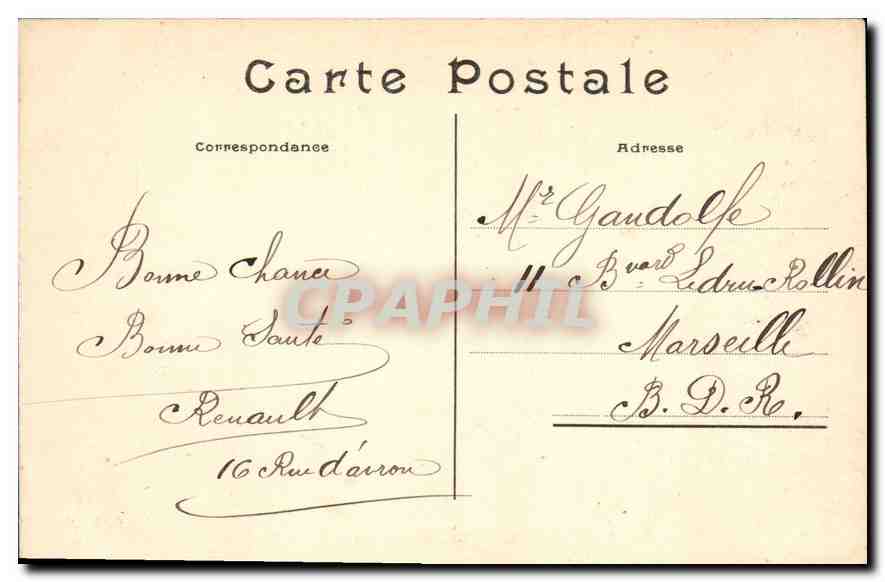 Carte Postale
Correspondance
Bonne chance
Bonne Santé
Renault
16 Rue d'avron
Adresse
Mr Gandolfe
11 Bvard Ledru-Rollin
Marseille
B. D. R.
CPAPHIL